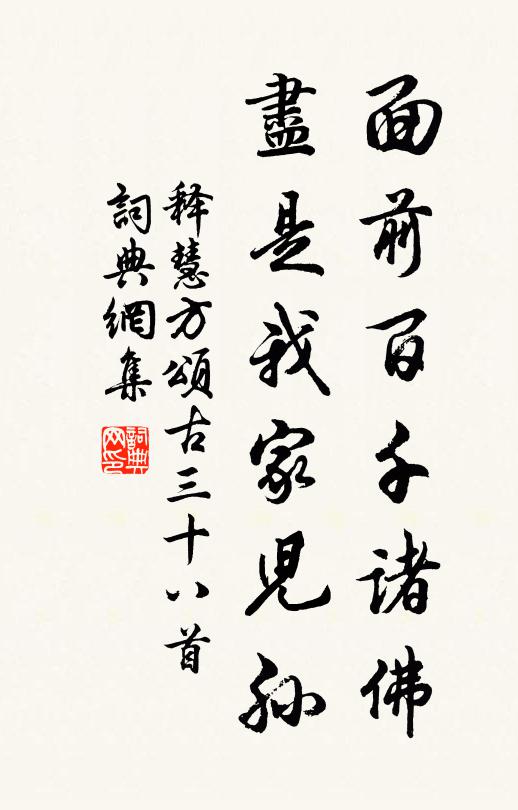 面前百千諸佛
盡是我家児孫
释慧方頌古三十八首
詞典網集
詞典网印